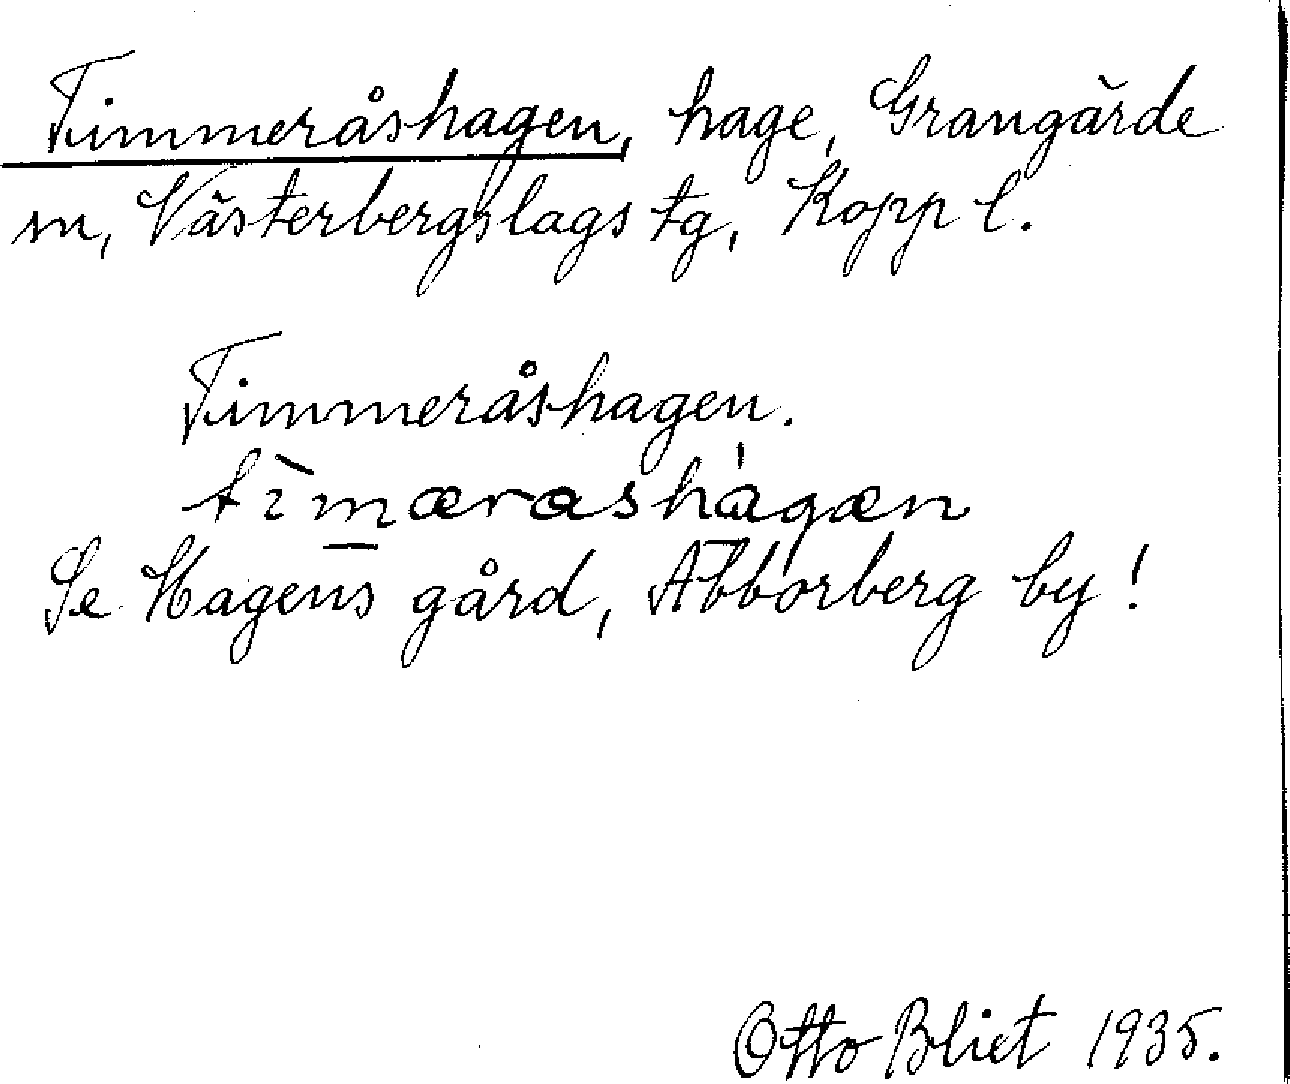 Timmeråshagen, hage, Grangärde
sn, Västerbergslags tg, Kopp l.
Timmeråshagen.
tìmærashágæn
Se Hagens gård, Abborberg by!
Otto Blixt 1935.